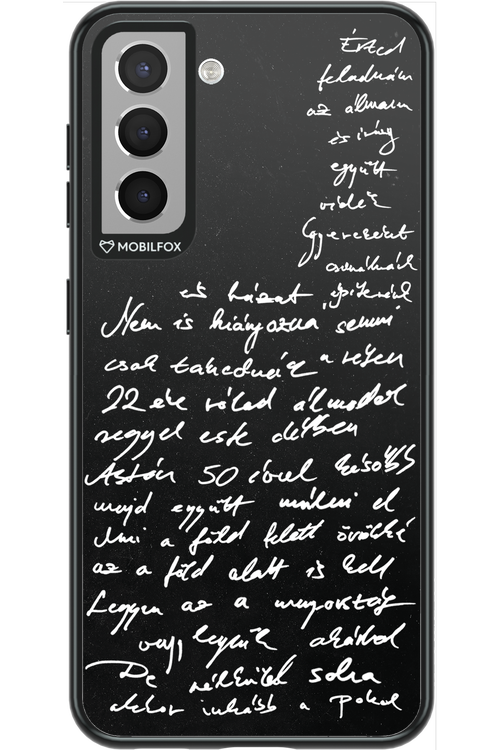 MOBILFOX
Érted
feladnám
az álmam
és irány
együtt
vidék
Gyerekeket
csinálnák
és házat építenék
Nem is hiányozna semmi
csak tehednék a részem
22 éve rólad álmodok
reggel este délben
Aztán 50 évvel később
majd együtt múlni el
Ami a föld felett örökké
az a föld alatt is kell
Legyen az a mennyország
vagy legyünk akárhol
De nélküled soha
akkor inkább a pokol